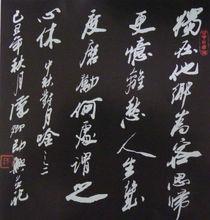 獨在他鄉為客思歸
更憶離愁人生幾
度磨勵何處謂之
心休 中秋對月吟之二
己丑年秋月